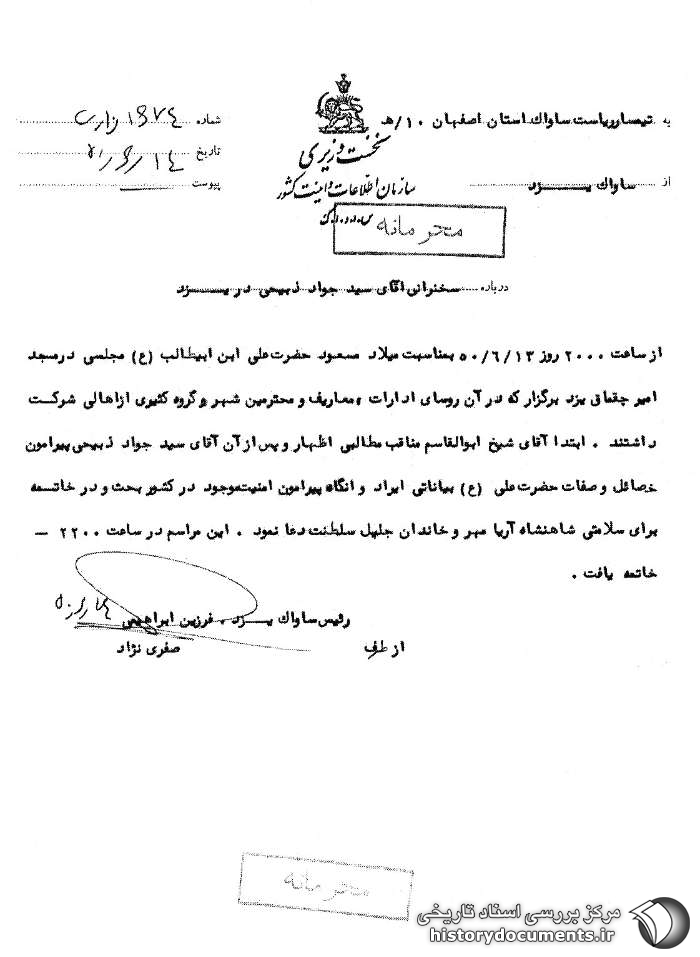 به تیمسار ریاست ساواك استان اصفهان ۱۰/هـ
شماره
از ساواك یــــزد
تاریخ
پیوست
نخست وزیری
سازمان اطلاعات و امنیت کشور
س.ا.و.ا.ك
محرمانه
درباره سخنرانی آقای سید جواد ذبیحی در یــــزد
از ساعت ۲۰۰۰ روز ۵۰/۶/۱۳ بمناسبت میلاد مسعود حضرت علی ابن ابیطالب (ع) مجلسی در مسجد
امیر چقماق یزد برگزار که در آن روسای ادارات ، معاریف و محترمین شهر و گروه کثیری از اهالی شرکت
داشتند . ابتدا آقای شیخ ابوالقاسم مناقب مطالبی اظهار و پس از آن آقای سید جواد ذبیحی پیرامون
خصائل و صفات حضرت علی (ع) بیاناتی ایراد و انگاه پیرامون امنیت موجود در کشور بحث و در خاتمه
برای سلامتی شاهنشاه آریا مهر و خاندان جلیل سلطنت دعا نمود . این مراسم در ساعت ۲۲۰۰ –
خاتمه یافت .
رئیس ساواك یــــزد . فرزین ابراهیمی
از طرف صفری نژاد
محرمانه
مرکز بررسی اسناد تاریخی
historydocuments.ir